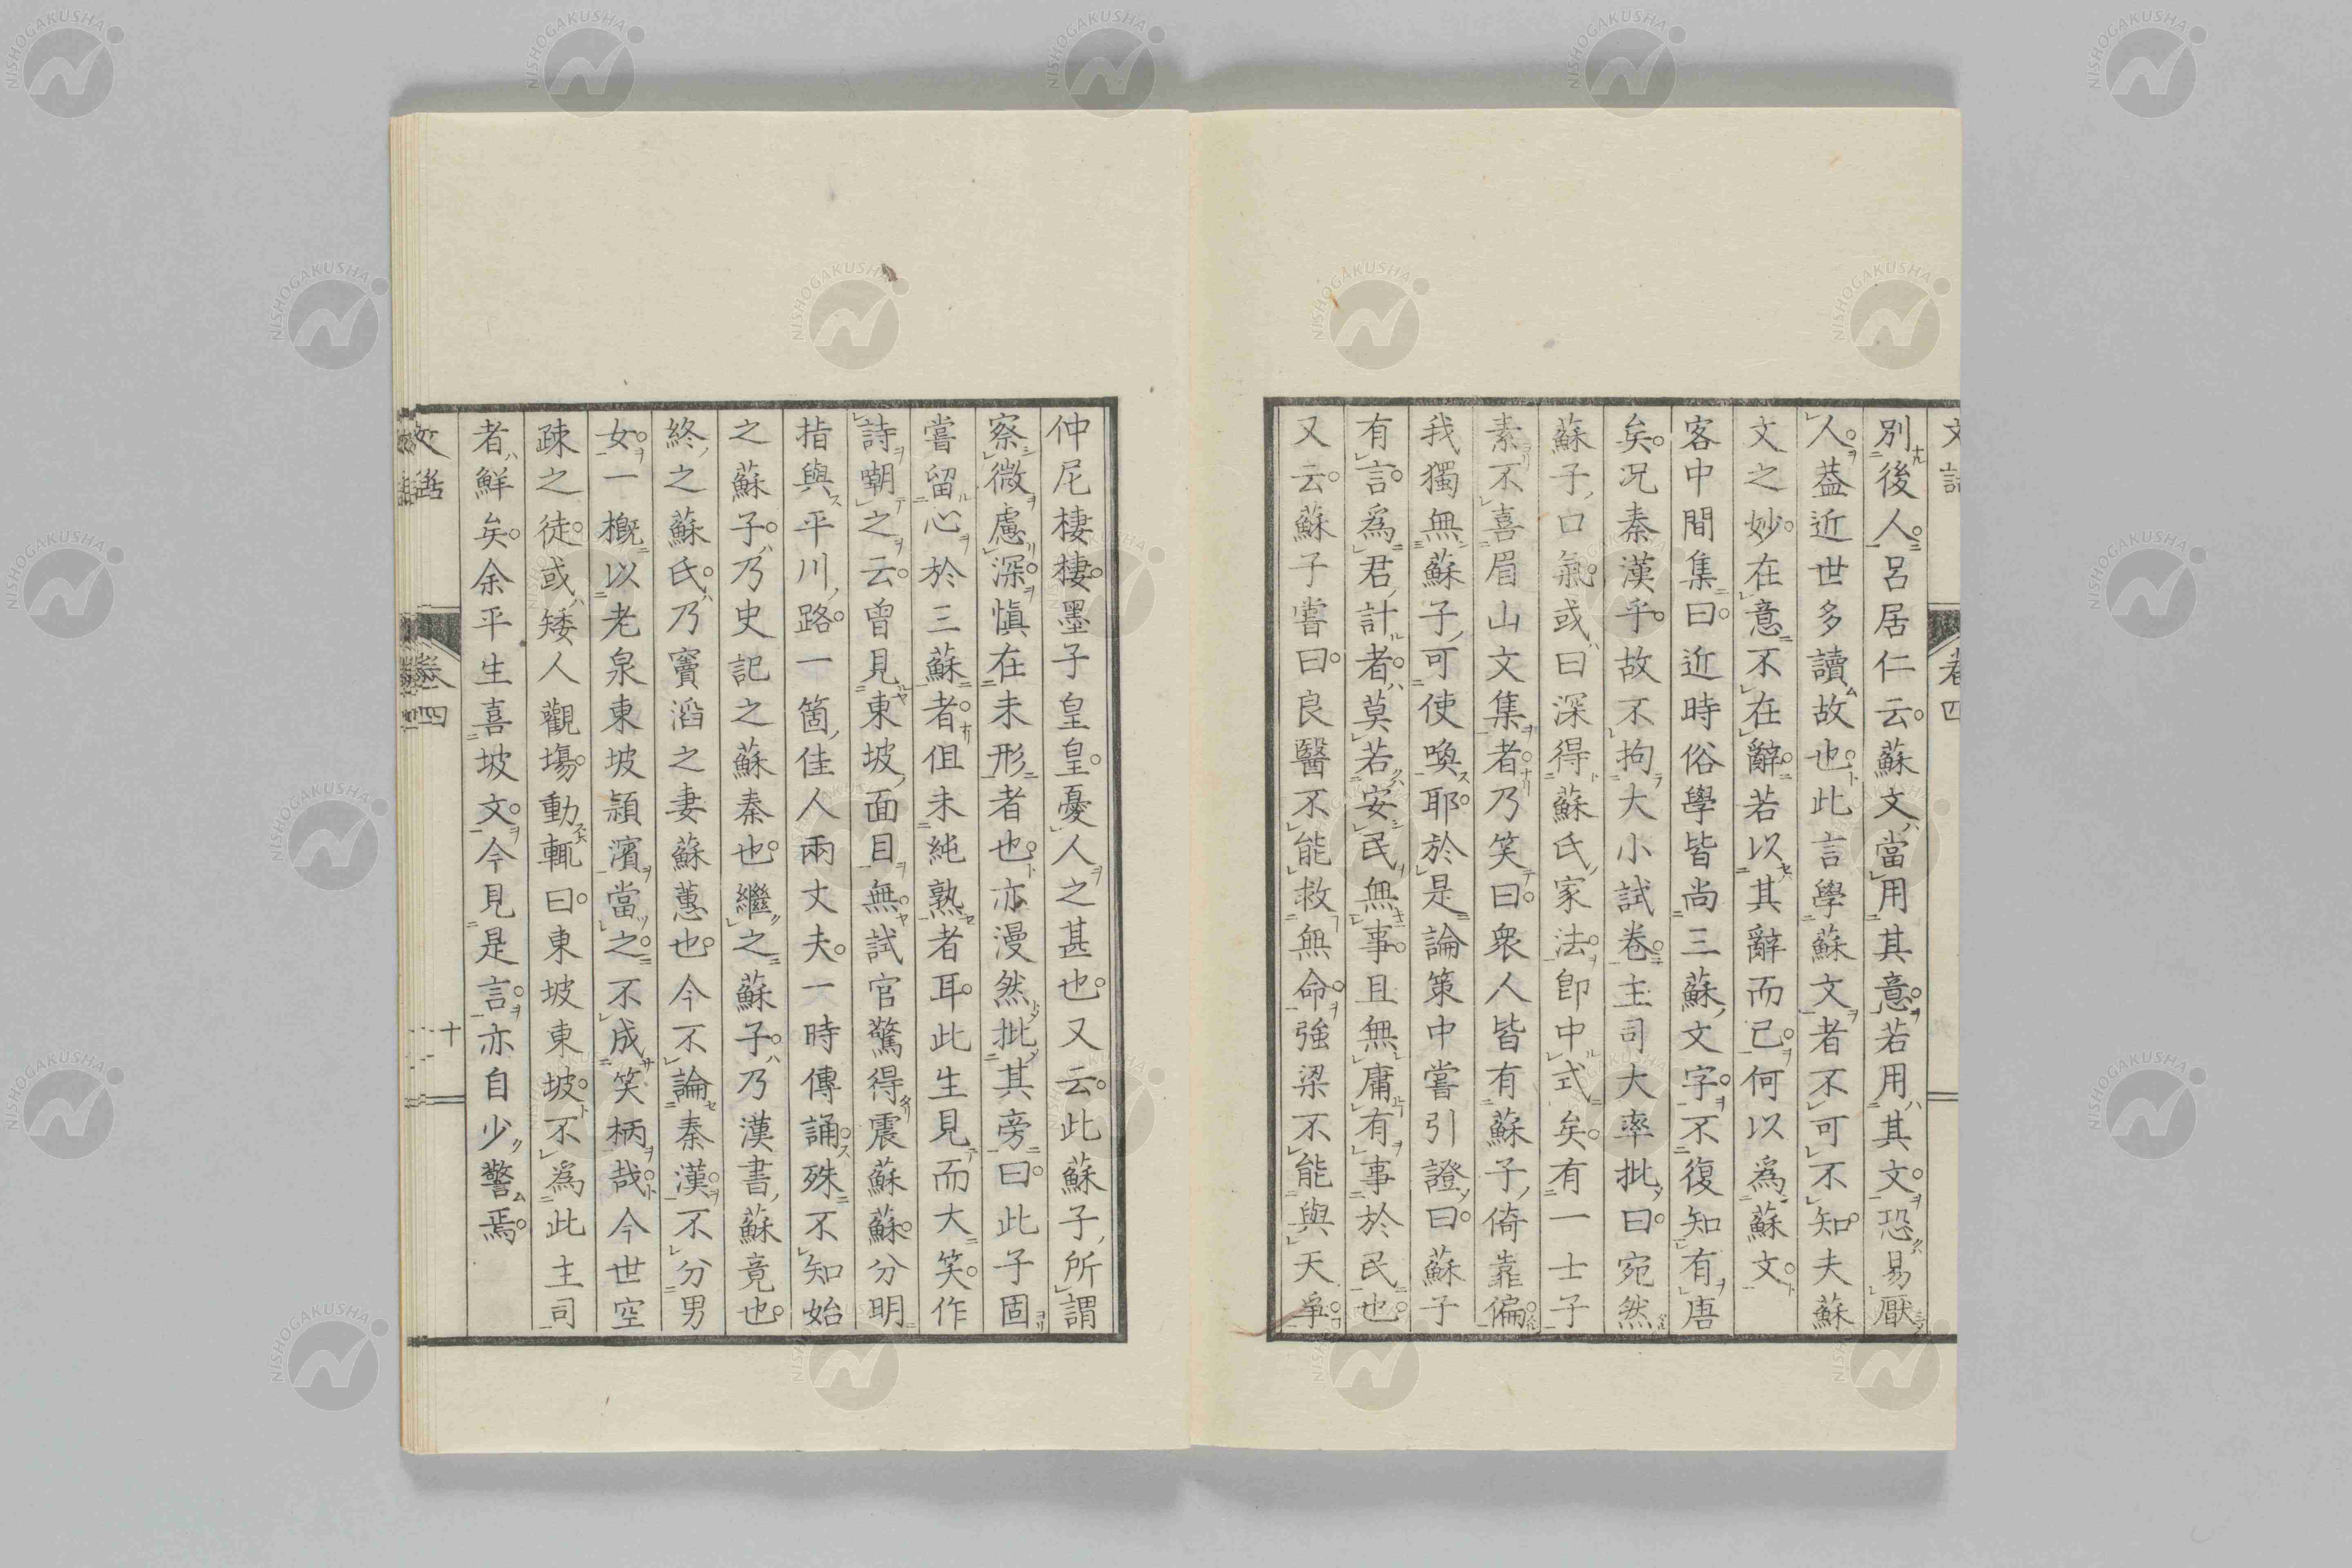 別後人呂居仁云蘇文當用其意若用其文恐易厭
人葢近世多讀故也此言學蘇文者不可不知夫蘇
文之妙在意不在辭若以其辭而已何以爲蘇文
客中閒集曰近時俗學皆尚三蘇文字不復知有唐
矣況秦漢乎故不拘大小試卷主司大率批曰宛然
蘇子口氣或曰深得蘇氏家法卽中式矣有一士子
素不喜眉山文集者乃笑曰衆人皆有蘇子倚靠偏
我獨無蘇子可使喚耶於是論策中嘗引證曰蘇子
有言爲君計者莫若安民無事且無庸有事於民也
又云蘇子嘗曰良醫不能救無命強梁不能與天爭
仲尼棲棲墨子皇皇憂人之甚也又云此蘇子所謂
察微慮深愼在未形者也亦漫然批其旁曰此子固
嘗留心於三蘇者但未純熟者耳此生見而大笑作
詩嘲之云曾見東坡面目無試官驚得震蘇蘇分明
指與平川路一箇佳人兩丈夫一時傳誦殊不知始
之蘇子乃史記之蘇秦也繼之蘇子乃漢書蘇竟也
終之蘇氏乃竇滔之妻蘇蕙也今不論秦漢不分男
女一槪以老泉東坡潁濱當之不成笑柄哉今世空
疎之徒或矮人觀場動輒曰東坡東坡不爲此主司
者鮮矣余平生喜坡文今見是言亦自少警焉
文話
卷四
十